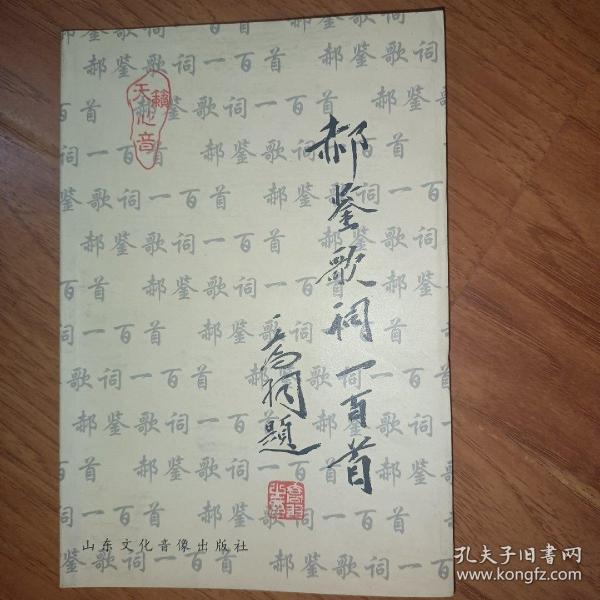 天籁心音
郝鉴歌词一百首
题
郝鉴歌词一百首
山东文化音像出版社
孔夫子旧书网
www.kongfz.com